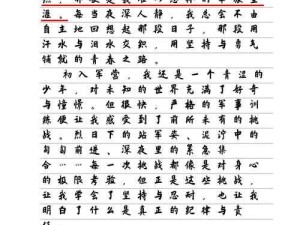 涯。每当夜深人静，我总会不由
自主地回想起那段日子，那段用
汗水与泪水交织，用坚持与勇气
铺就的青春之路。
初入军营，我还是一个青涩的
少年，对未知的世界充满了好奇
与憧憬。但很快，严格的军事训
练便让我感受到了前所未有的挑
战。烈日下的站军姿、泥泞中的
匍匐前进、深夜里的紧急集
合……每一次挑战都像是对身心
的极限考验，但正是这些挑战，
让我学会了坚持与忍耐，也让我
明白了什么是真正的纪律与责